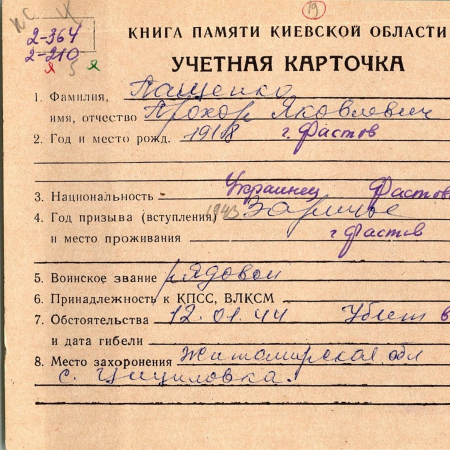 19
2-364
2-210
КНИГА ПАМЯТИ КИЕВСКОЙ ОБЛАСТИ
УЧЕТНАЯ КАРТОЧКА
1. Фамилия, Пащенко
имя, отчество Прохор Яковлевич
2. Год и место рожд. 1918 г. Фастов
3. Национальность Украинец Фастов
4. Год призыва (вступления) 1943 Заречье
и место проживания г. Фастов
5. Воинское звание рядовой
6. Принадлежность к КПСС, ВЛКСМ
7. Обстоятельства 12.01.44 Убит в
и дата гибели
8. Место захоронения Житомирская обл
с.